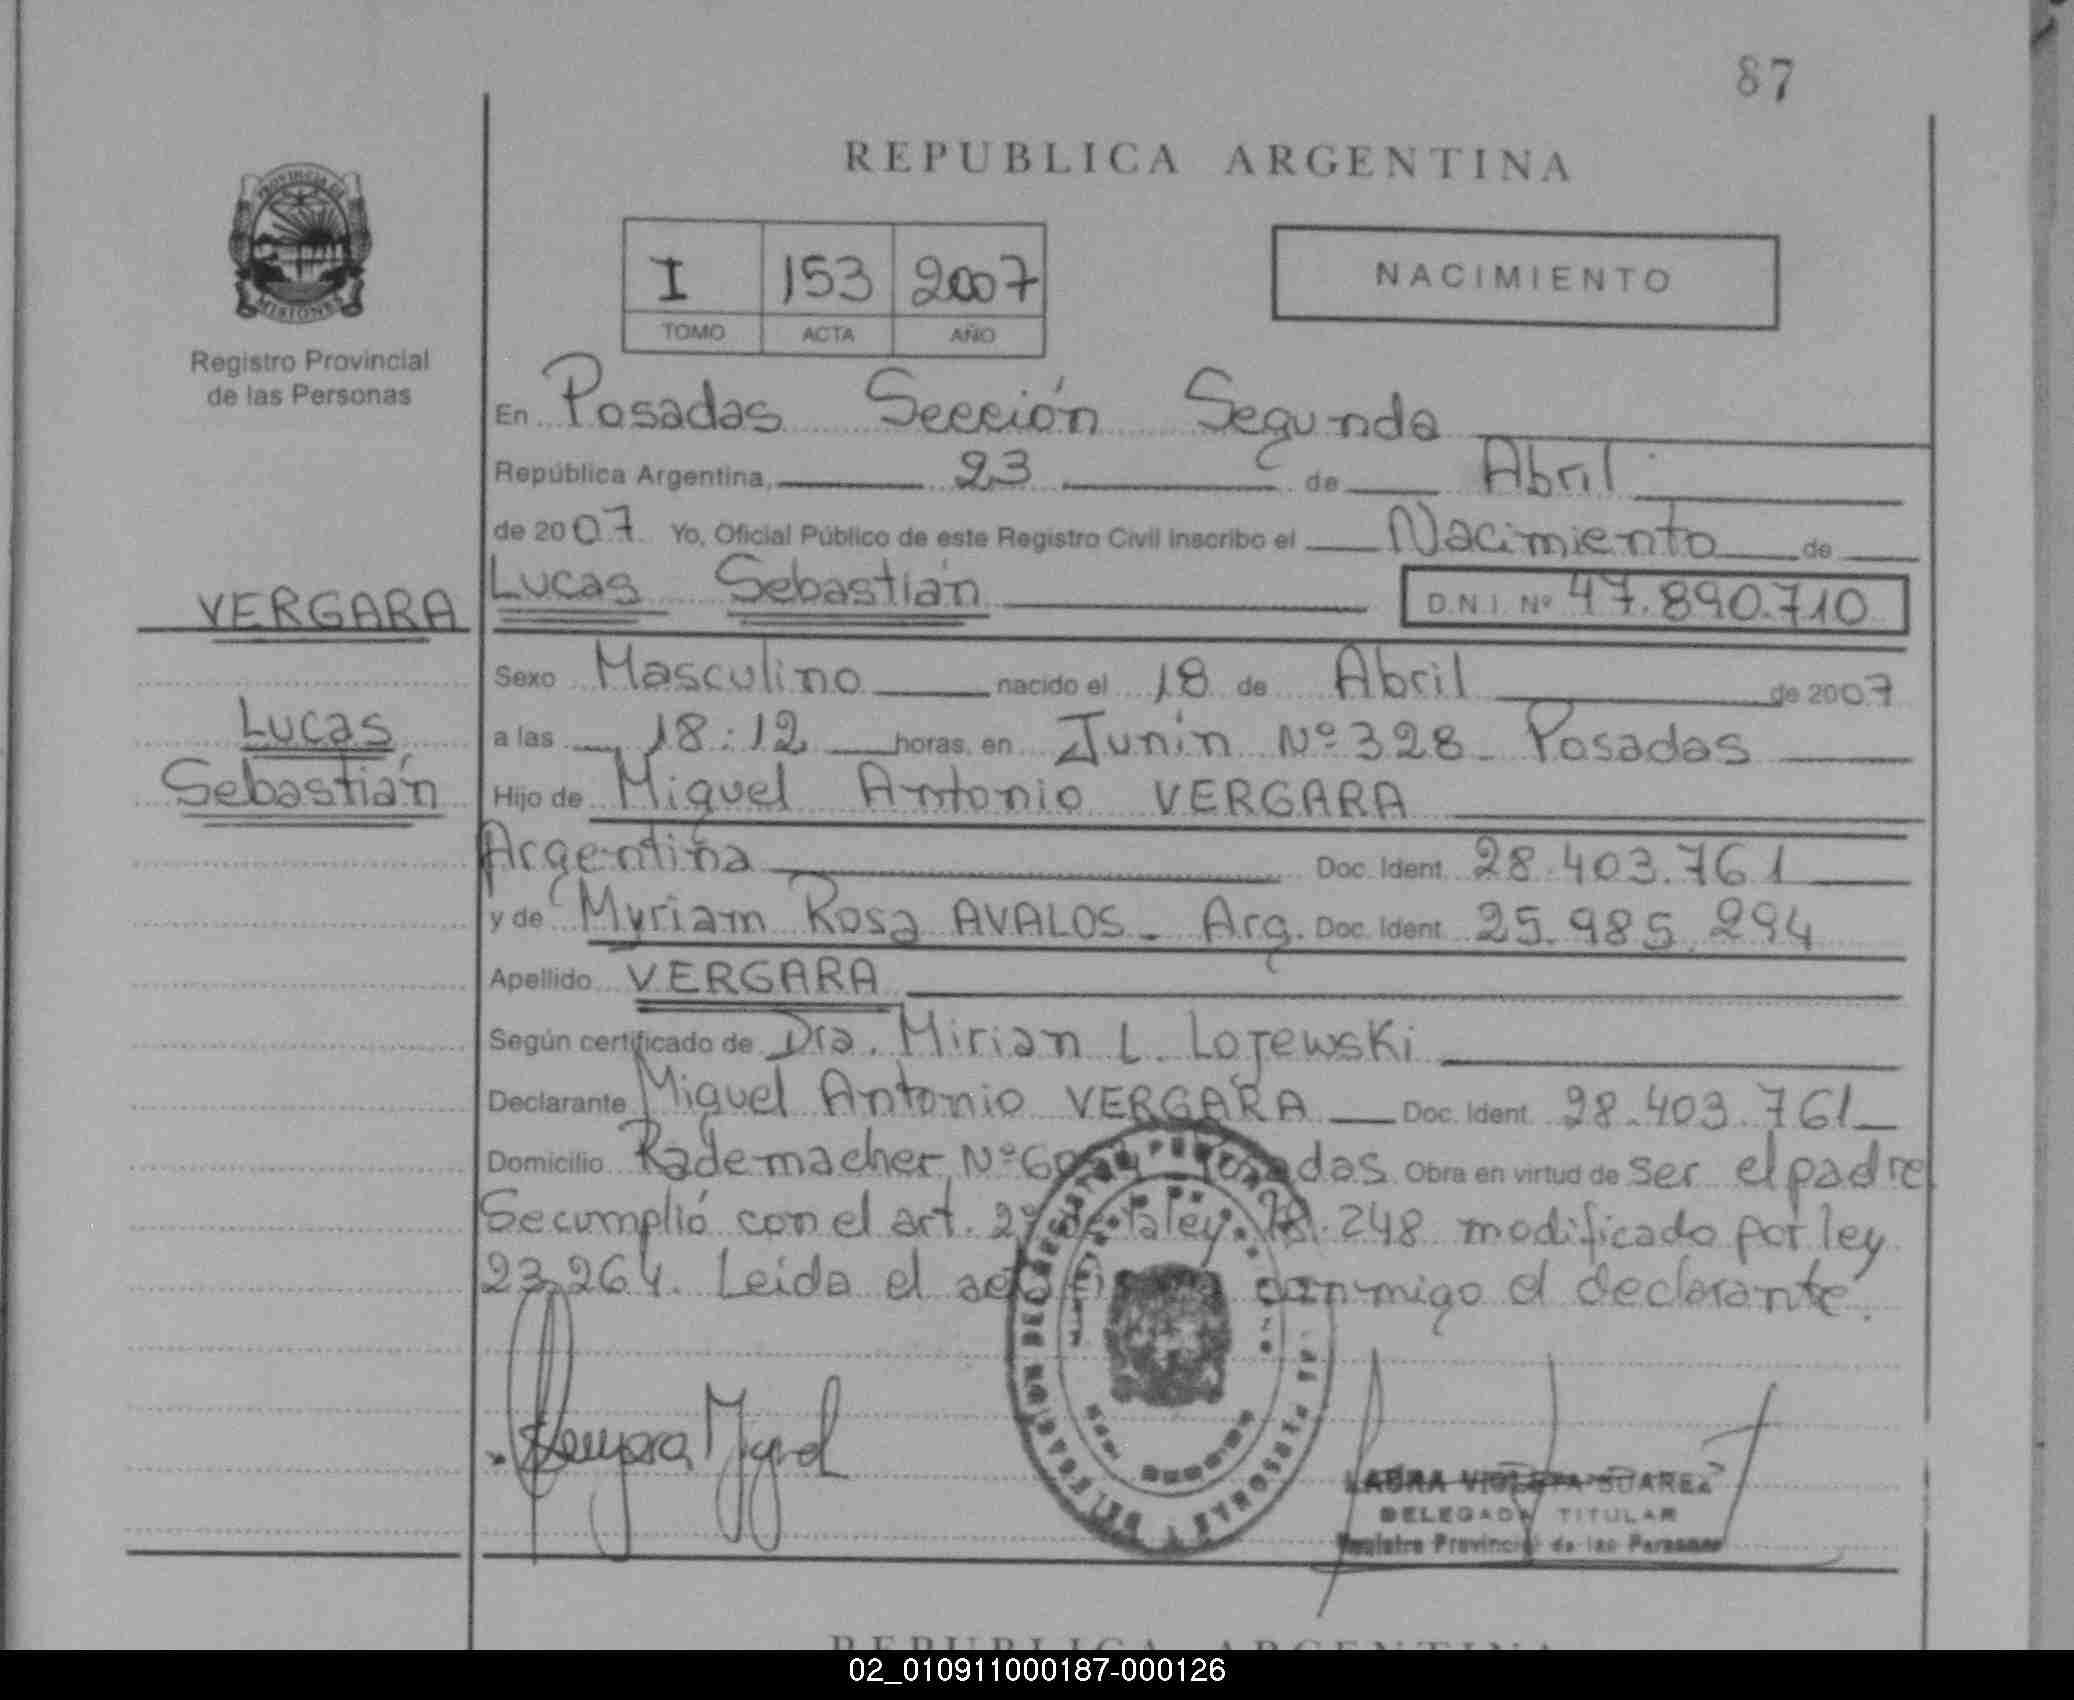 87
REPUBLICA ARGENTINA
PROVINCIA DE
MISIONES
I 153 2007
TOMO ACTA AÑO
NACIMIENTO
Registro Provincial
de las Personas
En Posadas Sección Segunda
República Argentina, 23 de Abril
de 2007 Yo, Oficial Público de este Registro Civil inscribo el Nacimiento de
VERGARA Lucas Sebastián D.N.I. Nº 47.890.710
Sexo Masculino nacido el 18 de Abril de 2007
Lucas a las 18:12 horas, en Junín Nº 328 - Posadas
Sebastián Hijo de Miguel Antonio VERGARA
Argentina Doc. Ident. 28.403.761
y de Myriam Rosa AVALOS - Arg. Doc. Ident. 25.985.294
Apellido VERGARA
Según certificado de Dra. Mirian L. Lojewski
Declarante Miguel Antonio VERGARA Doc. Ident. 28.403.761
Domicilio Rademacher Posadas Obra en virtud de ser el padre
Se cumplió con el art. 2º de la ley 18.248 modificado por ley
23.264. Leída el acta conmigo el declarante.
Vergara Miguel
LAURA VIOLETA SUAREZ
DELEGADA TITULAR
Registro Provincial de las Personas
REPUBLICA ARGENTINA
02_010911000187-000126